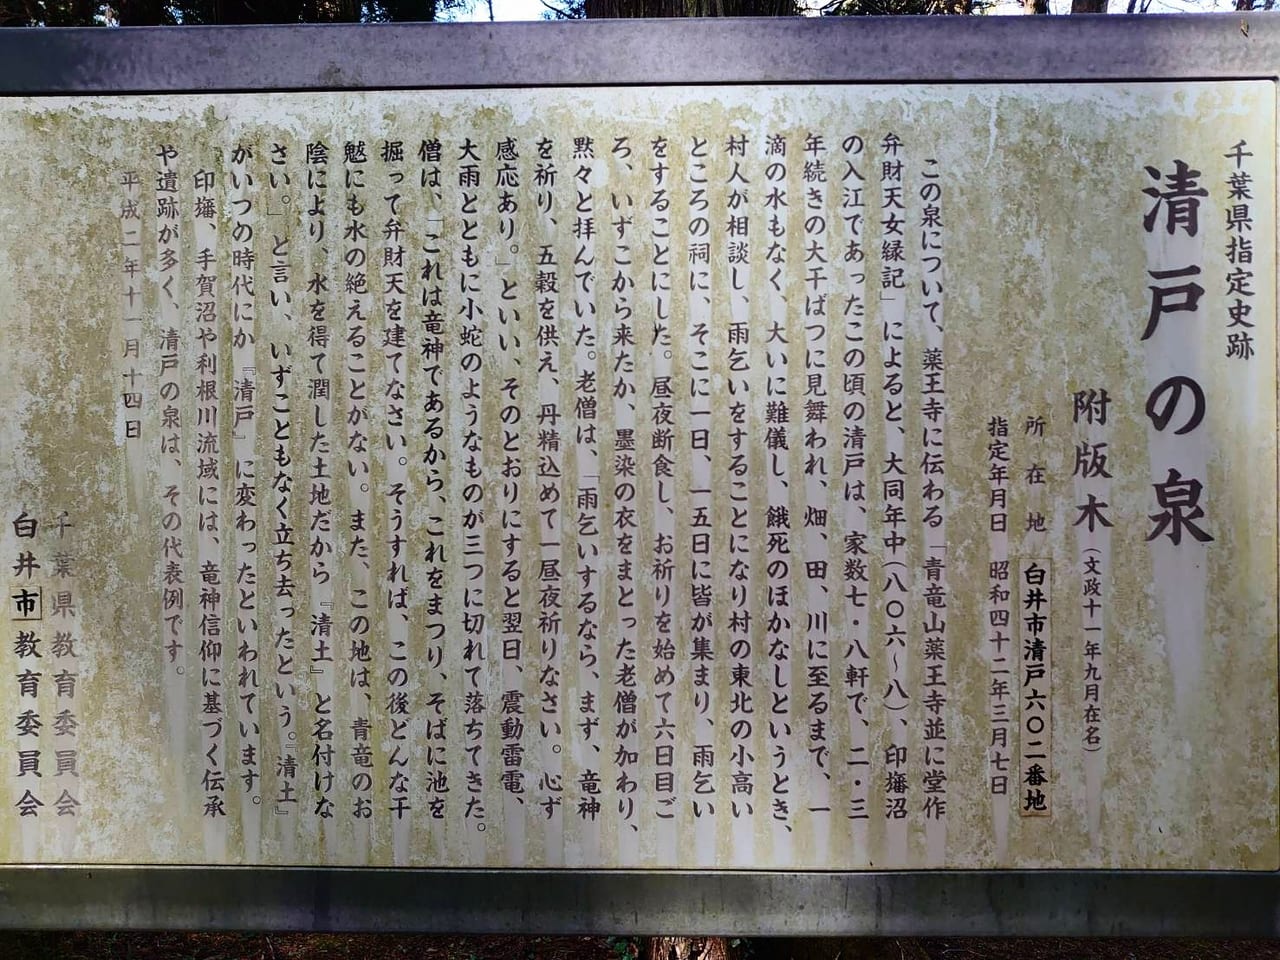 千葉県指定史跡
清戸の泉
附版木（文政十一年九月在名）
所在地 白井市清戸六〇二番地
指定年月日 昭和四十二年三月七日
この泉について、薬王寺に伝わる「青竜山薬王寺並に堂作
弁財天女縁記」によると、大同年中（八〇六～八）、印旛沼
の入江であったこの頃の清戸は、家数七・八軒で、二・三
年続きの大干ばつに見舞われ、畑、田、川に至るまで、一
滴の水もなく、大いに難儀し、餓死のほかなしというとき、
村人が相談し、雨乞いをすることになり村の東北の小高い
ところの祠に、そこに一日、一五日に皆が集まり、雨乞い
をすることにした。昼夜断食し、お祈りを始めて六日目ご
ろ、いずこから来たか、墨染の衣をまとった老僧が加わり、
黙々と拝んでいた。老僧は、「雨乞いするなら、まず、竜神
を祈り、五穀を供え、丹精込めて一昼夜祈りなさい。心ず
感応あり。」といい、そのとおりにすると翌日、震動雷電、
大雨とともに小蛇のようなものが三つに切れて落ちてきた。
僧は、「これは竜神であるから、これをまつり、そばに池を
掘って弁財天を建てなさい。そうすれば、この後どんな干
魃にも水の絶えることがない。また、この地は、青竜のお
陰により、水を得て潤した土地だから『清土』と名付けな
さい。」と言い、いずこともなく立ち去ったという。『清土』
がいつの時代にか『清戸』に変わったといわれています。
印旛、手賀沼や利根川流域には、竜神信仰に基づく伝承
や遺跡が多く、清戸の泉は、その代表例です。
平成二年十一月十四日
千葉県教育委員会
白井市教育委員会